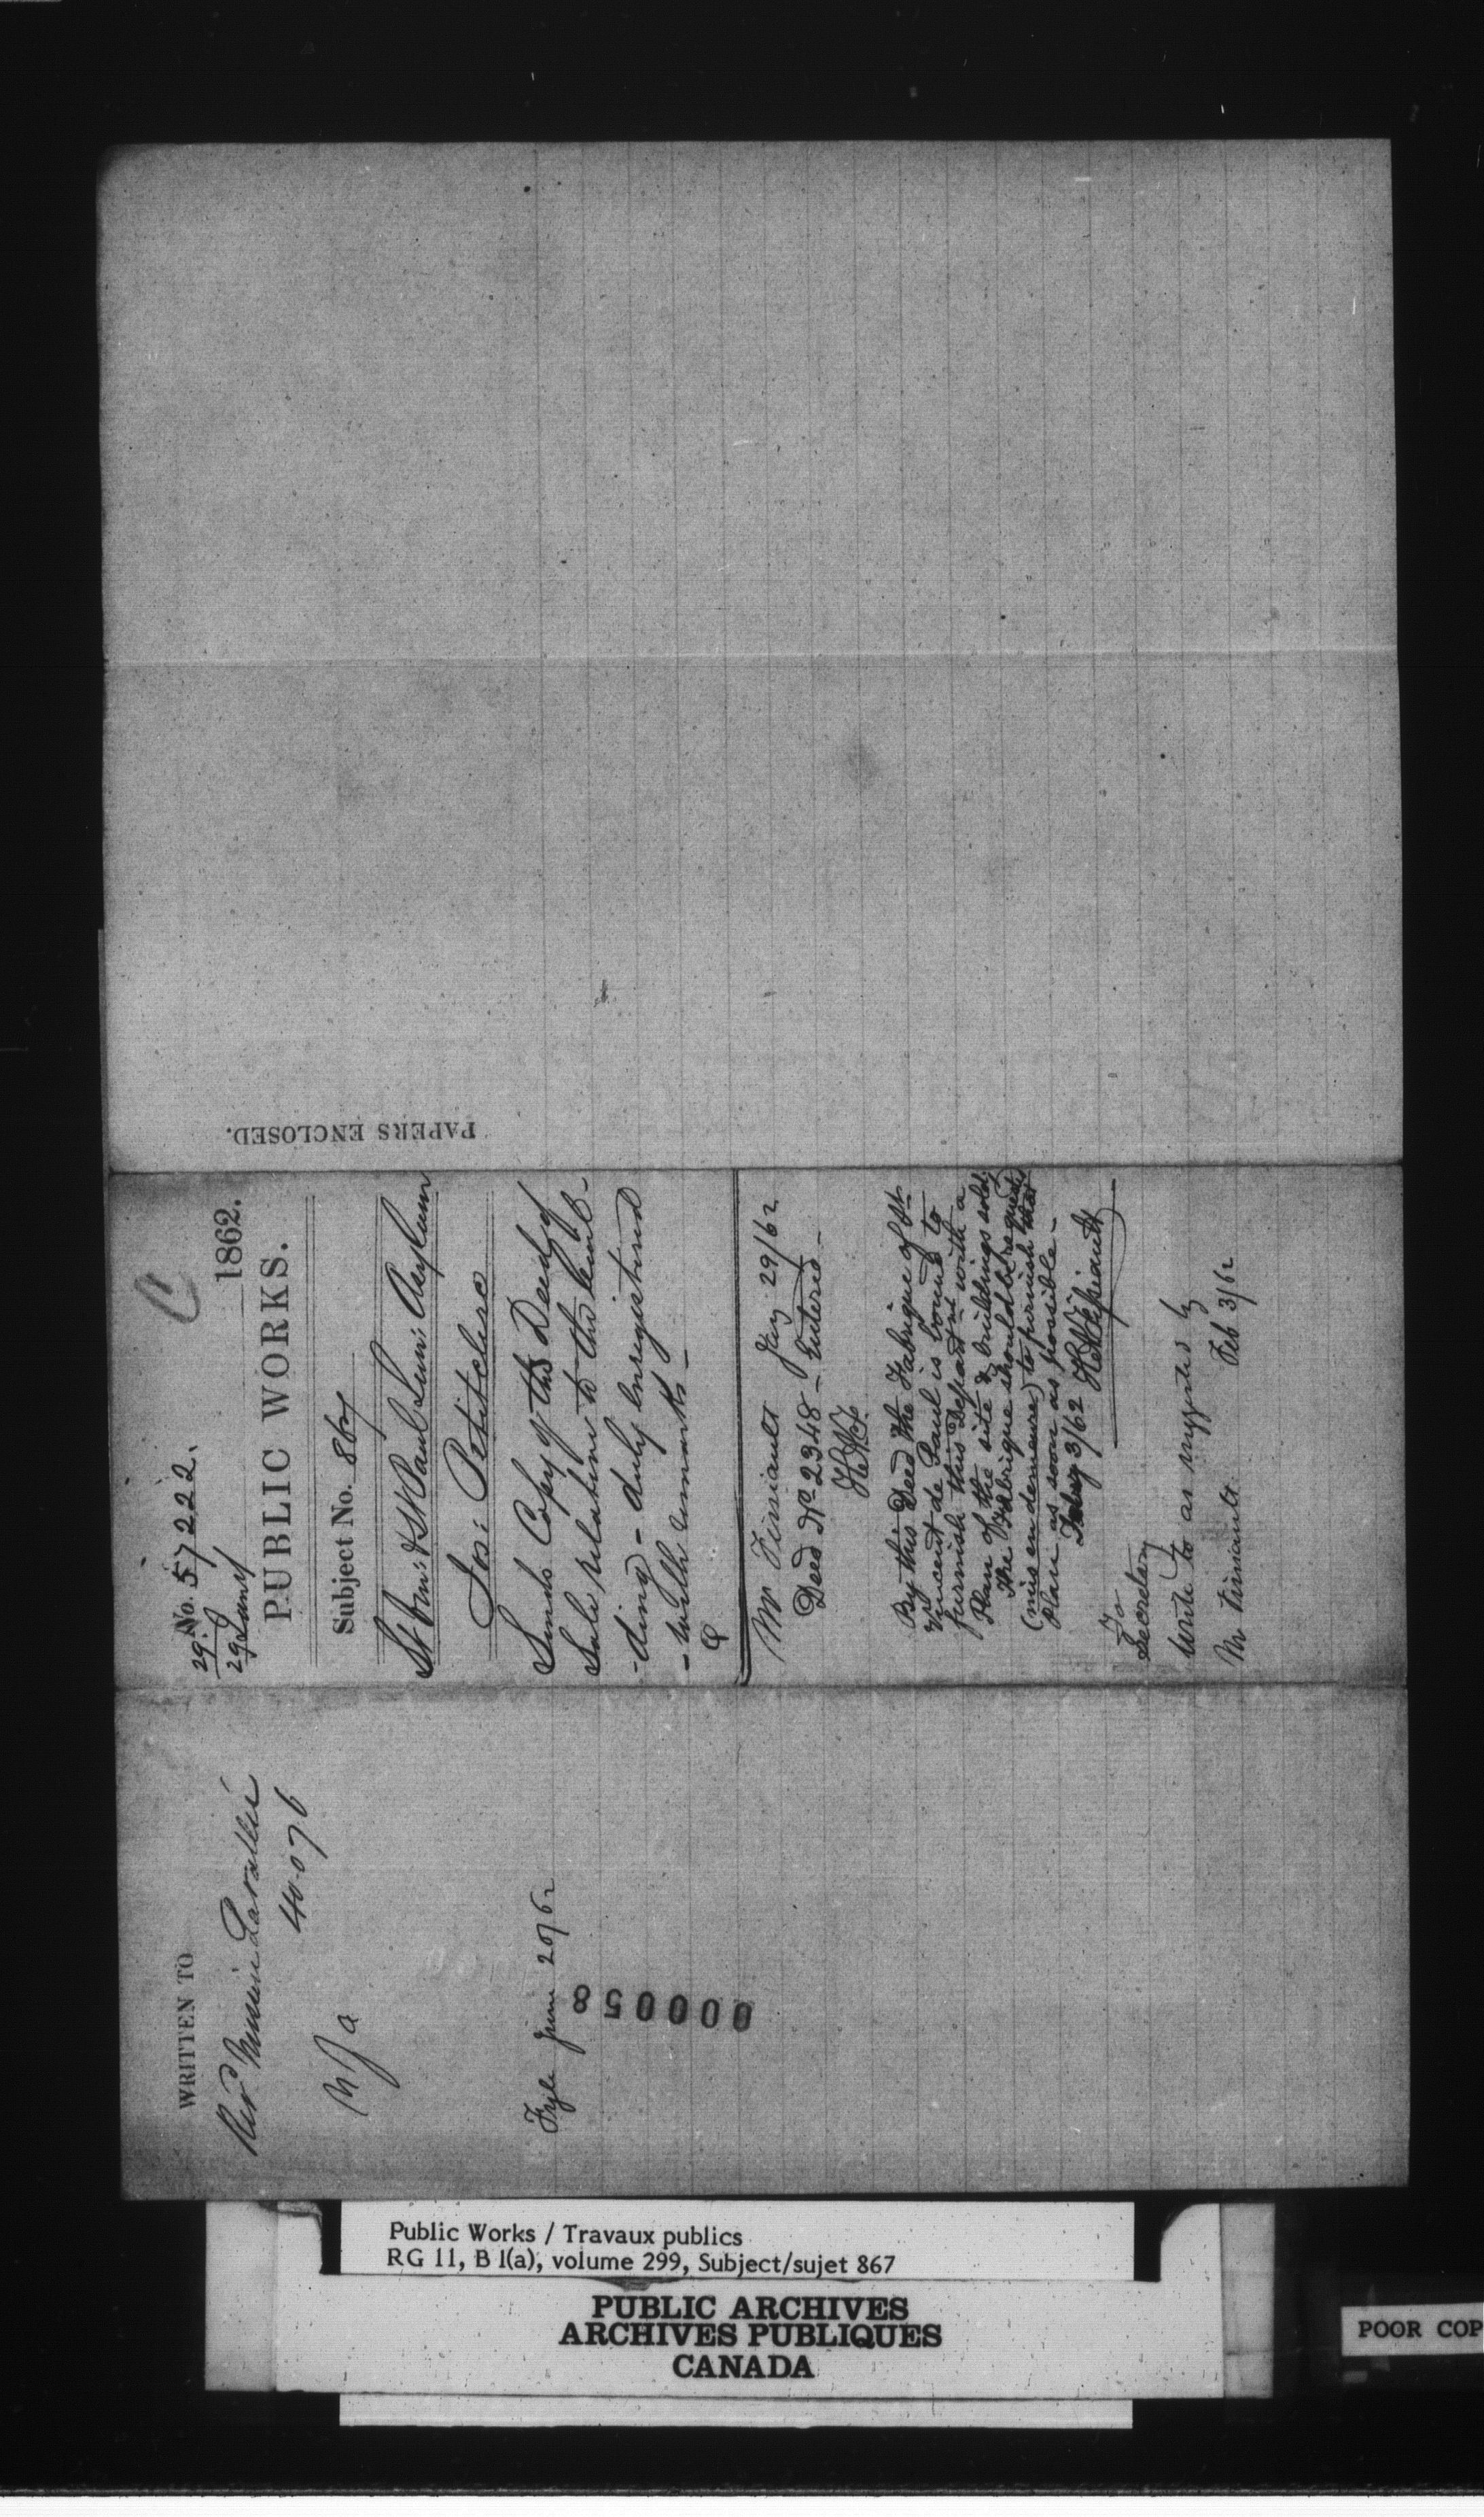 No. 57222.
29
29 Jany
1862.
PUBLIC WORKS.
Subject No. 867
St Vin: de Paul Lun: Asylum
Jos: Petitclerc
Sends Copy of the Deed of
Sale relative to this
-ding - duly enregistered
- with remarks -
Mr Tissiault Jany 29/62
Deed No 2348 - Entered -
By this Deed the Fabrique of St
Vincent de Paul is bound to
furnish this Department with a
Plan of the site & buildings sold.
The Fabrique should be requested
(mis en demeure) to furnish that
Plan as soon as possible -
Feby 3/62
To
Secretary
Write to as suggested by
Mr Tissiault Feb 3/62
PAPERS ENCLOSED.
WRITTEN TO
Revd Messire Lavallée
40.076
Fyle June 20/62
000058
Public Works / Travaux publics
RG 11, B 1(a), volume 299, Subject/sujet 867
PUBLIC ARCHIVES
ARCHIVES PUBLIQUES
CANADA
POOR COP